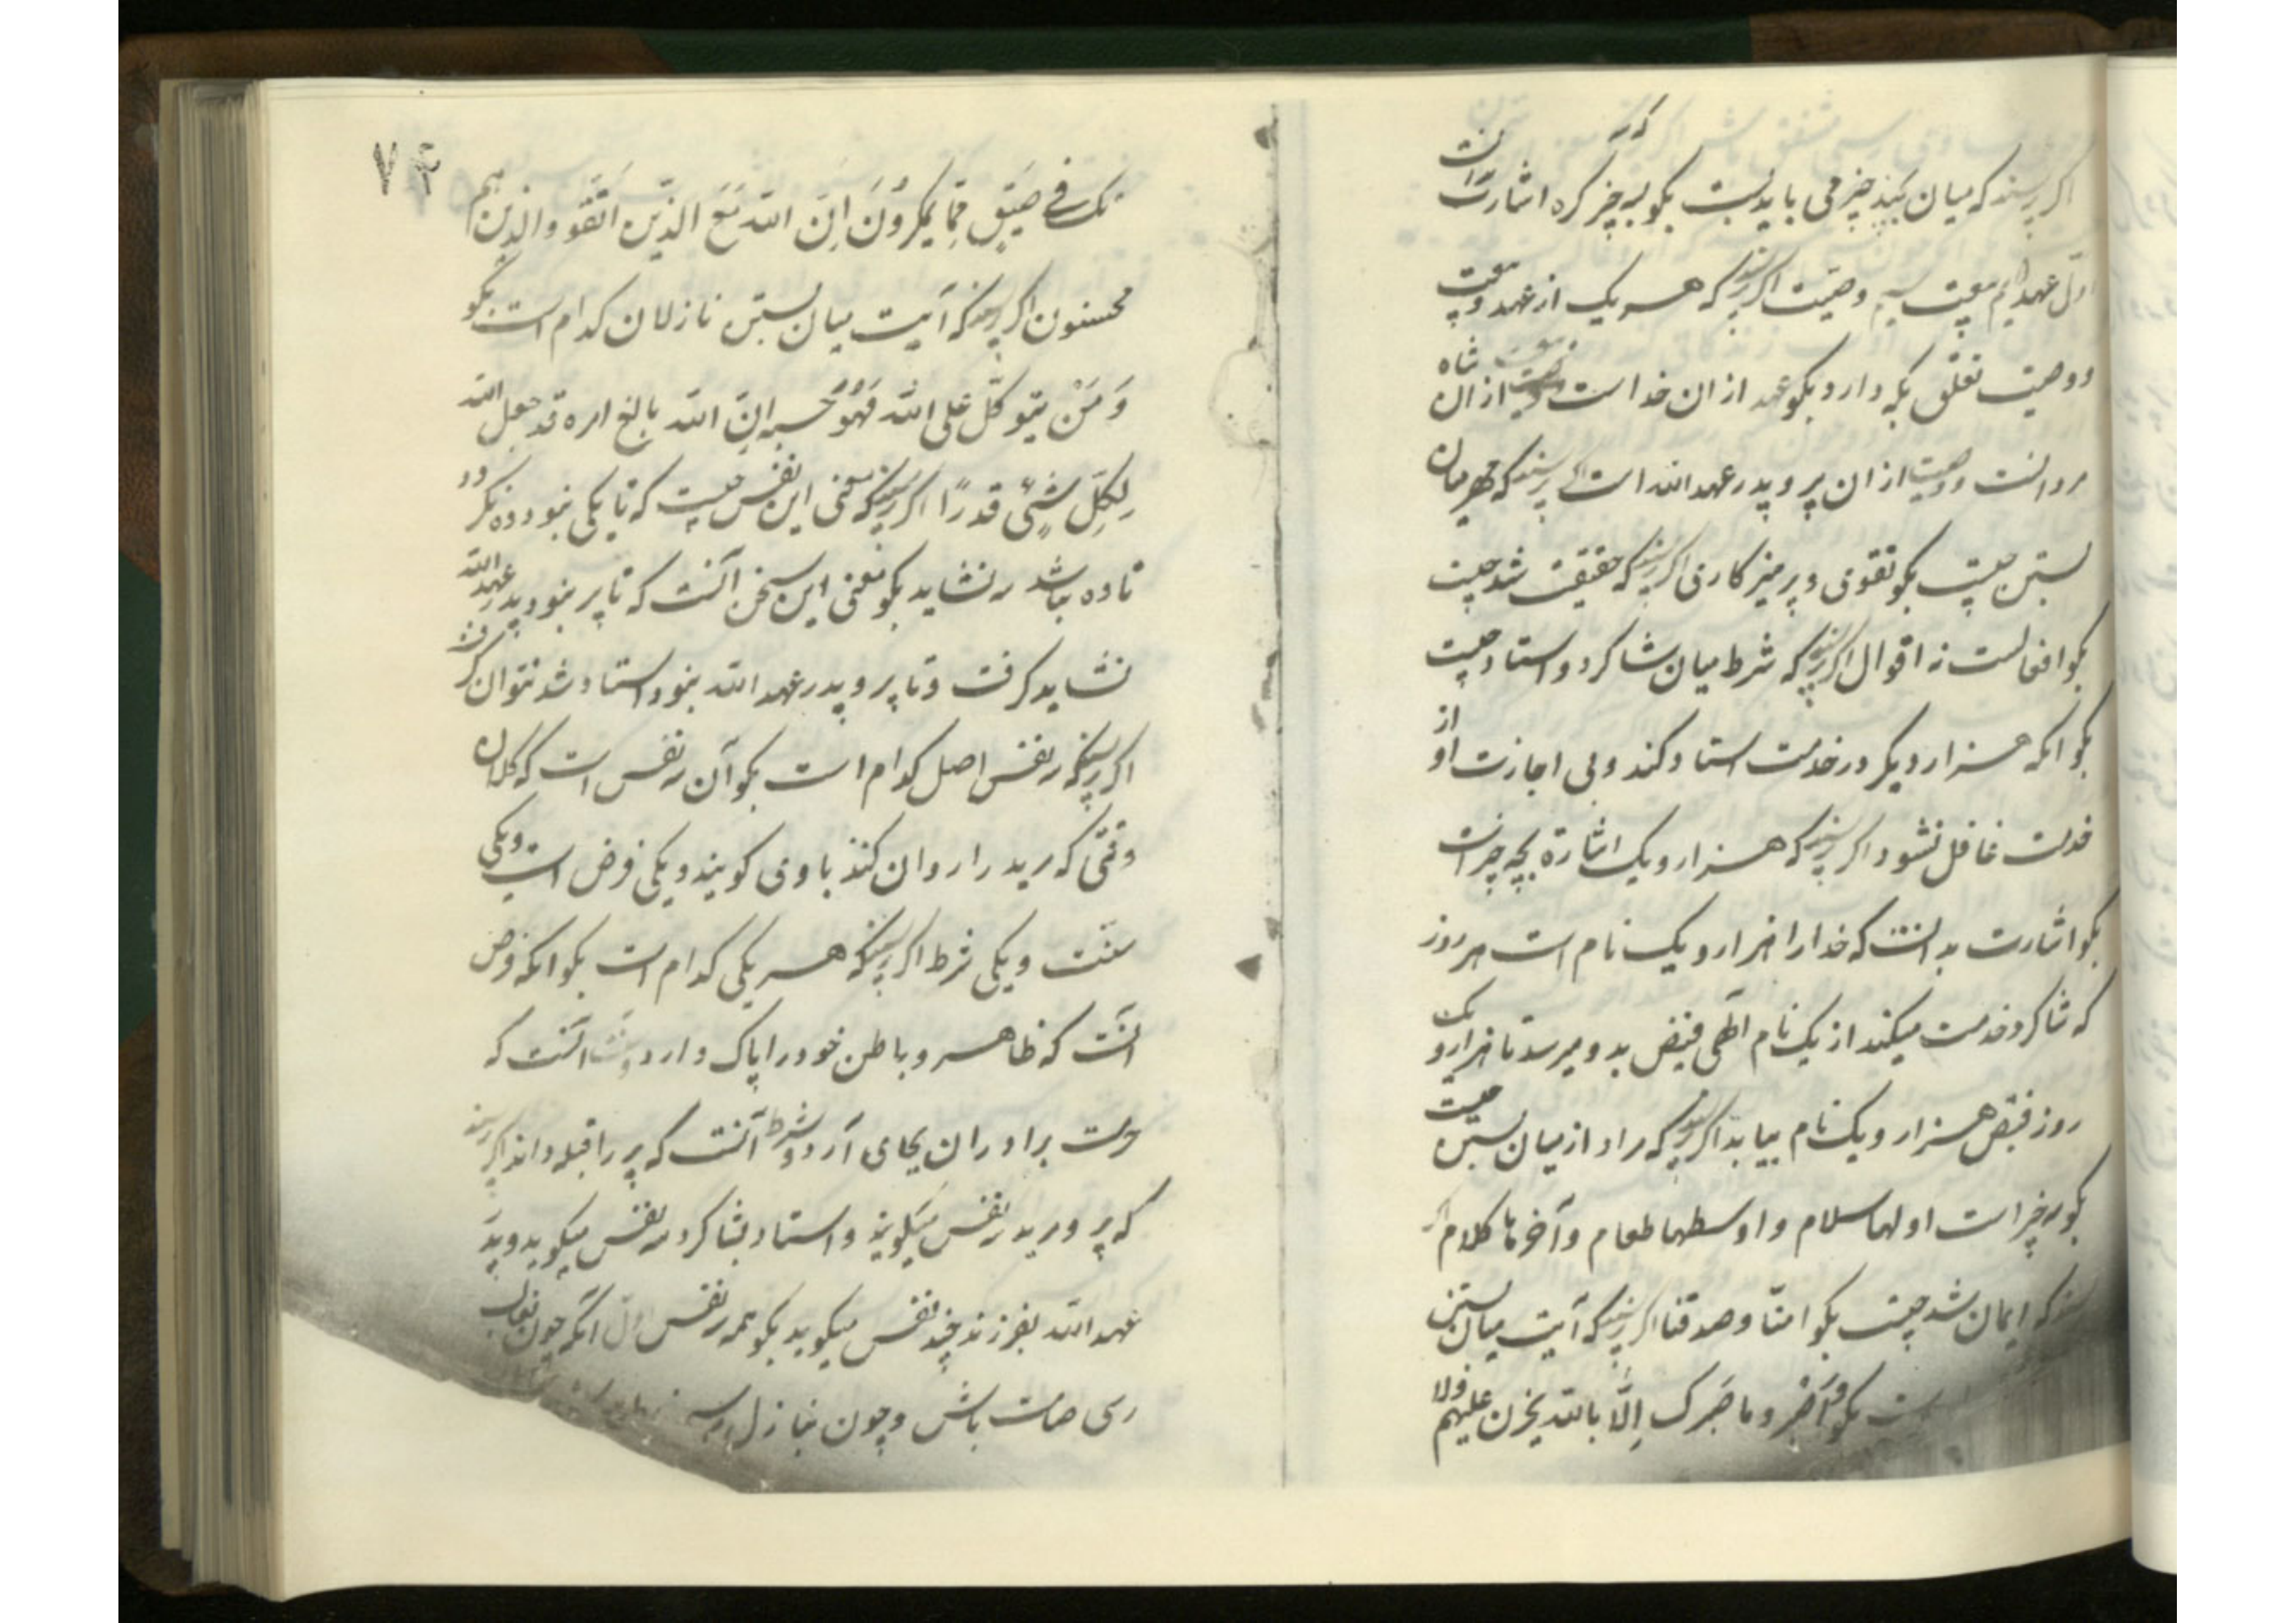 اگر پرسند که میان بچند چیز می باید بست بگو بسه چیز که اشارت
که سه
اول عهد دویم بیعت سیم وصیت اگر پرسند که هر یک از عهد و بیعت
و وصیت تعلق بکه دارد بگو عهد از ان خداست از ان شاه
مردانست و وصیت از ان پیر و پدر عهد الله است اگر پرسند که مهر میان
بستن چیست بگو تقوی و پرهیز کاری اگر پرسند که حقیقت شد چیست
بگو افعالست نه اقوال اگر پرسند که شرط میان شاکرد و استاد چیست
بگو انکه هزار و یکر در خدمت استاد کند و بی اجازت او از
خدمت غافل نشود اگر پرسند که هزار و یک اشارة بچه چیز است
بگو اشارت بدانست که خدا را هزار و یک نام است هر روز
که شاکرد خدمت میکند از یک نام الهی فیض بدو میرسد تا هزار و یک
روز فیض هزار و یک نام بیابد اگر پرسند که مراد از میان بستن چیست
بگو سه چیز است اولها سلام و اوسطها طعام و آخرها کلام
که ایمان شد چیست بگو امنّا و صدقنا اگر پرسند که آیت میان بستن
بگو و اصبر و ما صبرک اِلّا بالله یحزن علیهم ولا
۷۴
تک فے ضَیقٍ مِمّا یمکرُونَ اِنَّ الله مَعَ الذین اتّقَو والذین هم
محسنون اگر پرسند که آیت میان بستن نازلان کدام است بگو
وَ مَنْ یتوکّل علی الله فَهُوَ حسبه اِنّ الله بالغ امره قد جعل الله
لِکلِّ شیٍٔ قدرًا اگر پرسند که معنی این نفس چیست که تا یکی نبود دو نکرد
تا دو نباشد سه نشاید بگو معنی این سخن آنست که تا پیر نبود پدر عهد الله
نشاید کرفت و تا پیر و پدر عهد الله نبود استاد شد نتوان کرفت
اگر پرسند که سه نفس اصل کدام است بگو آن سه نفس است که کلان
وقتی که مرید را روان کنند با وی کویند و یکی فرض است و یکی
سنّت و یکی شرط اگر پرسند که هر یکی کدام است بگو انکه فرض
انست که ظاهر و باطن خود را پاک دارد و سنت آنست که
حرمت برادران بجای آرد و شرط آنست که پیر را قبله داند اگر پرسند
که پیر و مرید سه نفس میکویند و استاد بشاکرد سه نفس میکوید و پدر
عهد الله بفرزند چند نفس میکوید بگو همه سه نفس اول آنکه چون بغایب
رسی صامت باش و چون بنازل رسی